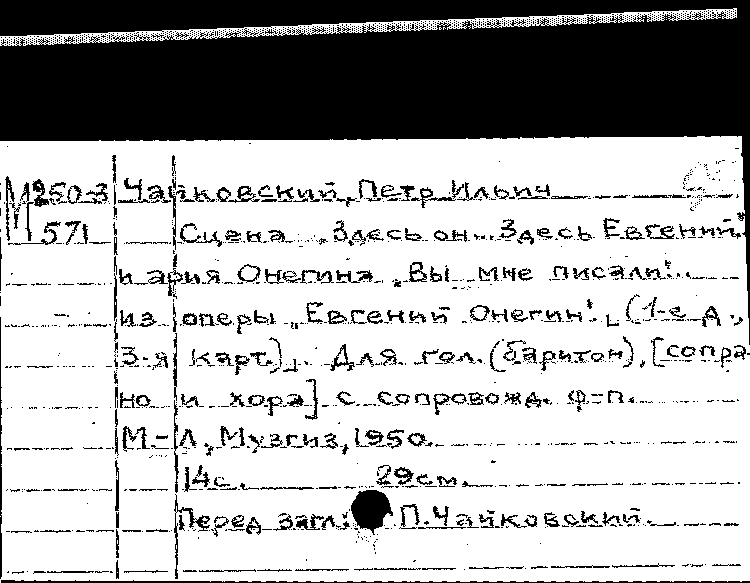 М250-3 Чайковский, Петр Ильич
571 Сцена „Здесь он... Здесь Евгений"
и ария Онегина „Вы мне писали"..
из оперы „Евгений Онегин". [(1-е д.,
3-я карт.)]. Для гол. (баритон), [сопра-
но и хора] с сопровожд. ф-п.
М.-Л., Музгиз, 1950.
14с. 29см.
Перед загл.: П. Чайковский.